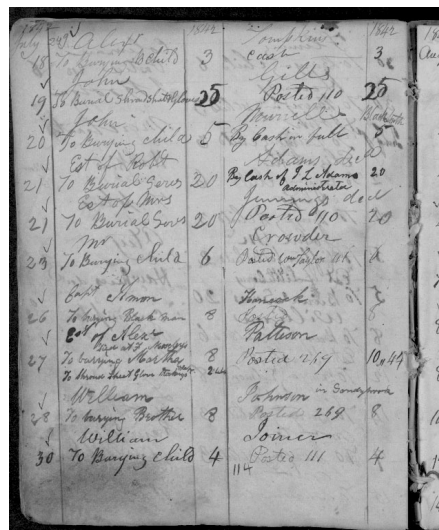 1842 1842 Tompkins 1842
July 24 Alext
18 To Burying B Child 3 Cash 3
John Gills
19 To Burial Shroud Sheet Gloves 25 Posted 110 25
John Nowell
20 To Burying child 5 By Cash in full 5
Est of Robt Adams Decd
21 To Burial Serves 20 By Cash of J L Adams 20
administrator
Est of Mrs Jennings decd
21 To Burial Serves 20 Posted 90 20
Mr Crowder
23 To Burying Child 6 Posted
Capt Simon
26 To burying Black man 8 8
Est of Alex Patteson
27 To burying Martha 8 Posted 269 10,,44
To Shroud Sheet Gloves 2.44
William Johnson
28 To burying Brother 8 Posted 269 8
William Joiner
30 To Burying Child 4 Posted 111 4
114